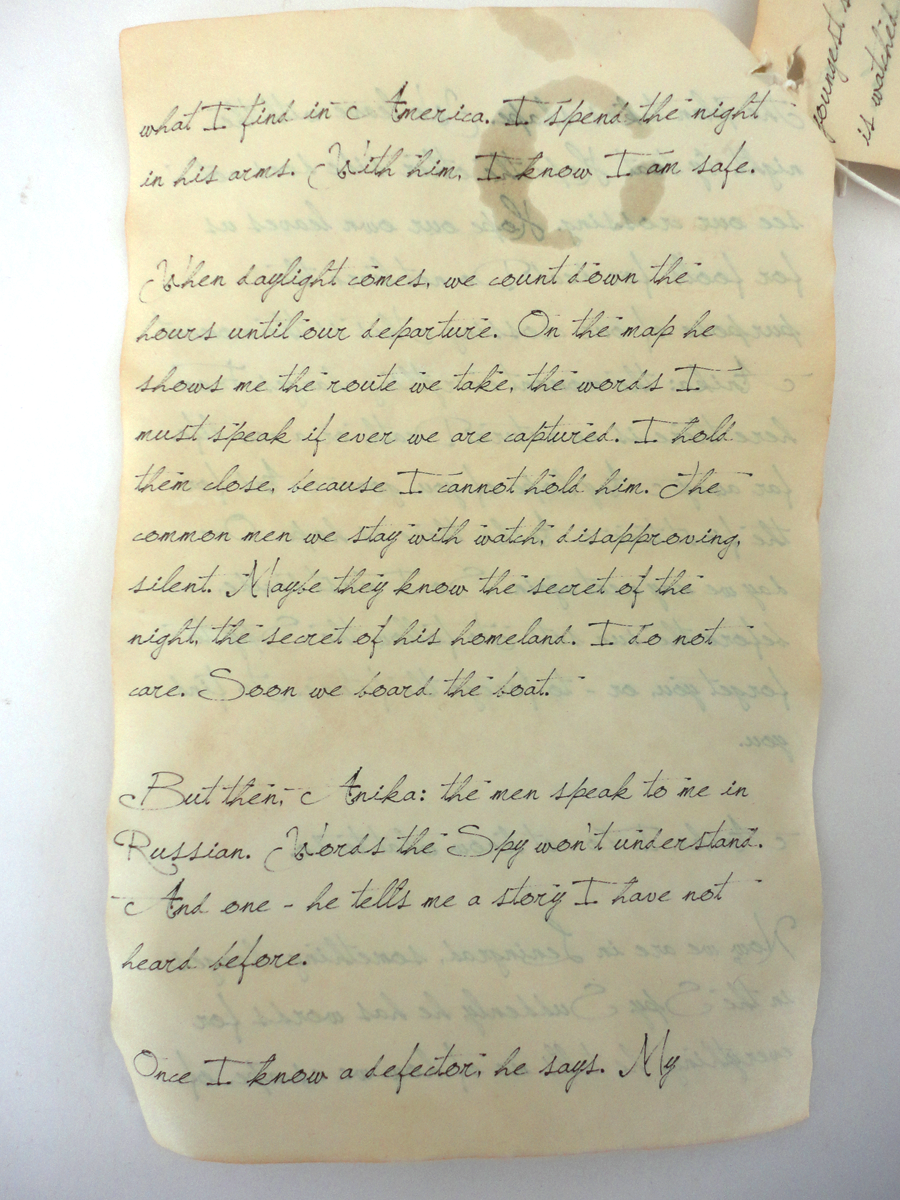 what I find in America. I spend the night
in his arms. With him, I know I am safe.
When daylight comes, we count down the
hours until our departure. On the map he
shows me the route we take, the words I
must speak if ever we are captured. I hold
them close, because I cannot hold him. The
common men we stay with watch, disapproving,
silent. Maybe they know the secret of the
night, the secret of his homeland. I do not
care. Soon we board the boat.
But then, Anika: the men speak to me in
Russian. Words the Spy won't understand.
And one - he tells me a story I have not
heard before.
Once I know a defector, he says. My
youngest
is watched